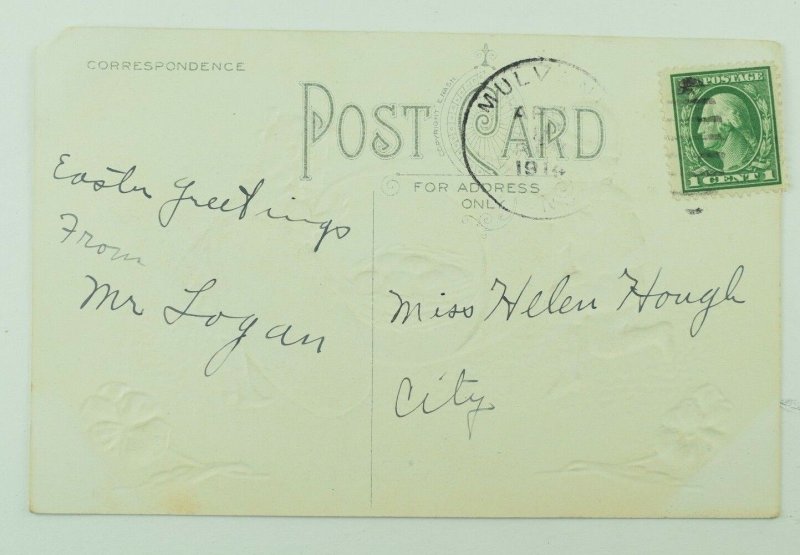 CORRESPONDENCE
POST CARD
FOR ADDRESS
ONLY
1914
POSTAGE
1 CENT 1
Easter Greetings
From
Mr Logan
Miss Helen Hough
City